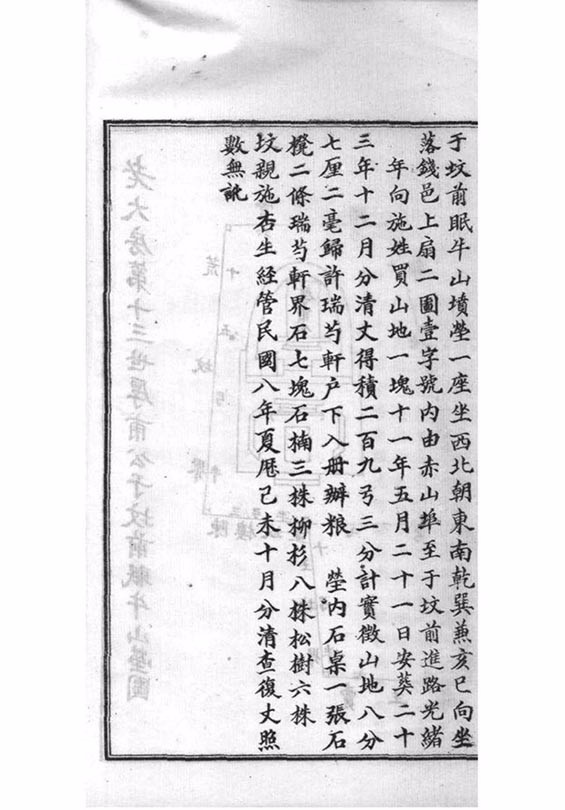 于坟前眠牛山墳塋一座坐西北朝東南乾巽兼亥巳向坐
落錢邑上扇二圖壹字號内由赤山埠至于坟前進路光緒
年向施姓買山地一塊十一年五月二十一日安葬二十
三年十二月分清丈得積二百九弓三分計實徵山地八分
七厘二毫歸許瑞芍軒户下入册辦粮 塋内石桌一張石
櫈二條瑞芍軒界石七塊石楠三株柳杉八株松樹六株
坟親施杏生經管民國八年夏厯己未十月分清查復丈照
數無訛
老大房第十三世厚甫公于坟前眠牛山塋圖